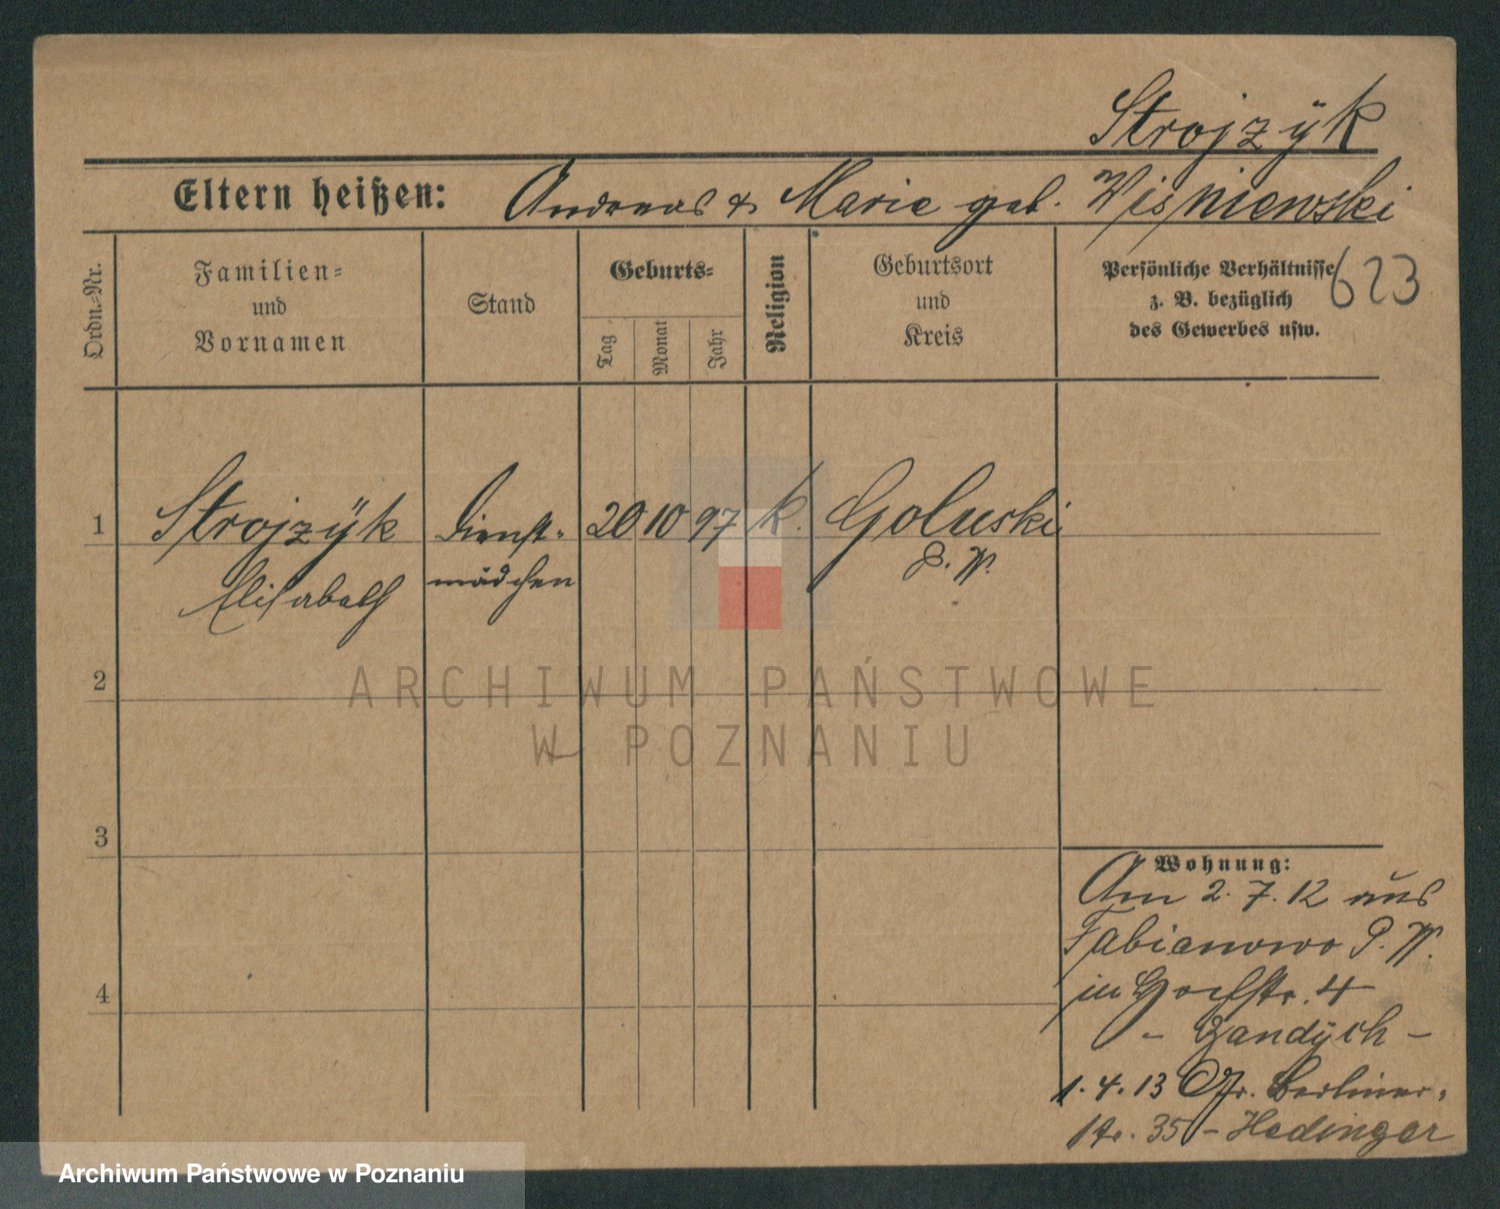 Strojzÿk
Eltern heißen: Andreas & Marie geb. Wiśniewski
Ordn.-Nr.
Familien-
und
Vornamen
Stand
Geburts-
Tag
Monat
Jahr
Religion
Geburtsort
und
Kreis
Persönliche Verhältnisse
z. B. bezüglich
des Gewerbes usw.
623
1 Strojzÿk Dienst- 20 10 97 k. Goluski
Elisabeth mädchen P. W.
2
3
4
Wohnung:
Am 2. 7. 12 aus
Fabianowo P. W.
in Hochstr. 4
- Zandÿch -
1. 4. 13 Gr. Berliner-
str. 35 - Hedinger
ARCHIWUM PAŃSTWOWE
W POZNANIU
Archiwum Państwowe w Poznaniu